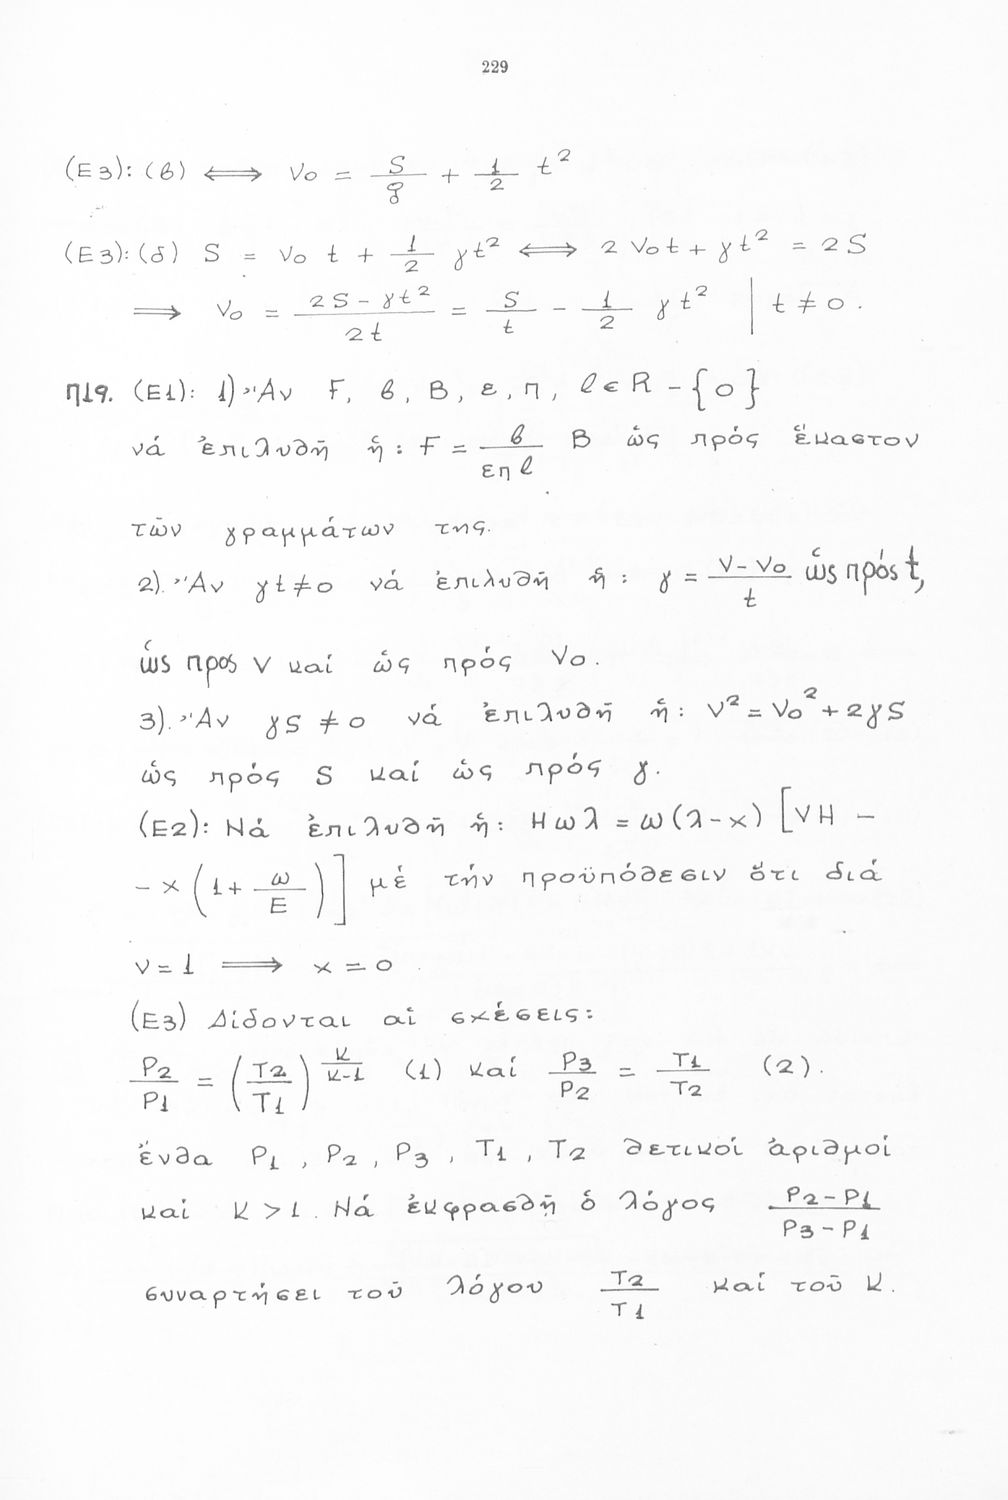 229
(Ε3): (β) ⟺ V₀ = S/γ + 1/2 t²
(Ε3): (δ) S = V₀ t + 1/2 γt² ⟺ 2V₀t + γt² = 2S
⟹ V₀ = (2S - γt²)/(2t) = S/t - 1/2 γt² | t ≠ 0.
Π19. (Ε1): 1) Ἄν F, β, Β, ε, π, ℓ ∈ R - {0}
νά ἐπιλυθῆ ἡ: F = β/(επℓ) Β ὡς πρός ἕκαστον
τῶν γραμμάτων της.
2). Ἄν γt ≠ 0 νά ἐπιλυθῆ ἡ: γ = (V - V₀)/t ὡς πρός t,
ὡς προς V καί ὡς πρός V₀.
3). Ἄν γS ≠ 0 νά ἐπιλυθῆ ἡ: V² = V₀² + 2γS
ὡς πρός S καί ὡς πρός γ.
(Ε2): Νά ἐπιλυθῆ ἡ: Ηωλ = ω(λ-x) [VH -
- x (1 + ω/Ε)] μέ τήν προϋπόθεσιν ὅτι διά
ν = 1 ⟹ x = 0
(Ε3) Δίδονται αἱ σχέσεις:
P₂/P₁ = (T₂/T₁)^(K/(K-1)) (1) καί P₃/P₂ = T₁/T₂ (2).
ἔνθα P₁, P₂, P₃, T₁, T₂ θετικοί ἀριθμοί
καί K > 1. Νά ἐκφρασθῆ ὁ λόγος (P₂-P₁)/(P₃-P₁)
συναρτήσει τοῦ λόγου T₂/T₁ καί τοῦ K.